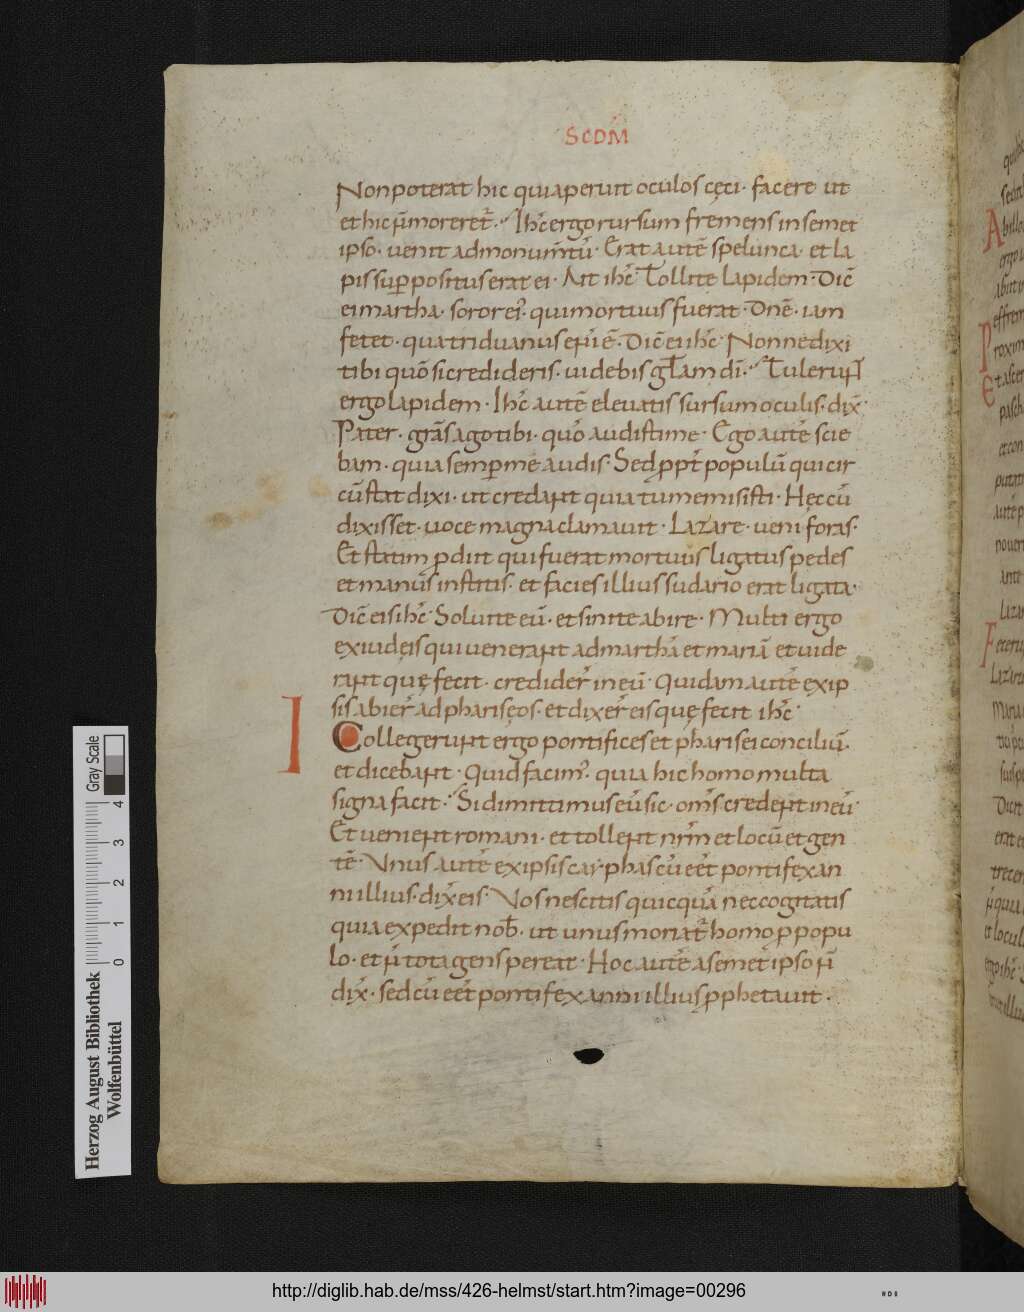 SCDM̄
Nonpoterat hic quiaperuit oculos cęci· facere ut
et hic n̄ moreret̄. Ih̄c ergo rursum fremens insemet
ipso· uenit admonumtū· Erat autē spelunca· et la
pis sup̱positus erat ei· Ait ih̄c Tollite lapidem· Dic̄
ei martha· soror ei᾽ qui mortuus fuerat· Dn̄e· iam
fetet· quatriduanus enī ē· Dic̄ ei ih̄c Nonne dixi
tibi quō si credideris· uidebis gl̄am dī· Tulerunt
ergo lapidem· Ih̄c autē eleuatis sursum oculis· dix̄
Pater· grās ago tibi· quō audisti me· Ego autē scie
bam· quia semp̱ me audis· Sed ppt̄ populū qui cir
cūstat dixi· ut credant quia tu me misisti· Hęc cū
dixisset· uoce magna clamauit· Lazare· ueni foras·
Et statim pdiit qui fuerat mortuus ligatus pedes
et manus institis· et facies illius sudario erat ligata·
Dic̄ eis ih̄c· Soluite eū· et sinite abire· Multi ergo
ex iudęis qui uenerant ad marthā et mariā et uide
rant quę fecit· credider̄ in eū· Quidam autē ex ip
sis abier̄ ad phariseos· et dixer̄ eis quę fecit ih̄c
I
Collegerunt ergo pontifices et pharisei conciliū·
et dicebant· Quid facim᾽· quia hic homo multa
signa facit· Si dimittimus eū sic· om̄s credent in eū·
Et uenient romani· et tollent nr̄m et locū et gen
tē· Vnus autē ex ipsis caiphas cū eēt pontifex an
ni illius· dix̄ eis· Vos nescitis quicquā nec cogitatis
quia expedit nob̄· ut unus moriat̄ homo p popu
lo· et n̄ tota gens pereat· Hoc autē a semet ipso n̄
dix̄· sed cū eēt pontifex anni illius pphetauit·
Gray Scale
4 3 2 1 0
Herzog August Bibliothek
Wolfenbüttel
http://diglib.hab.de/mss/426-helmst/start.htm?image=00296